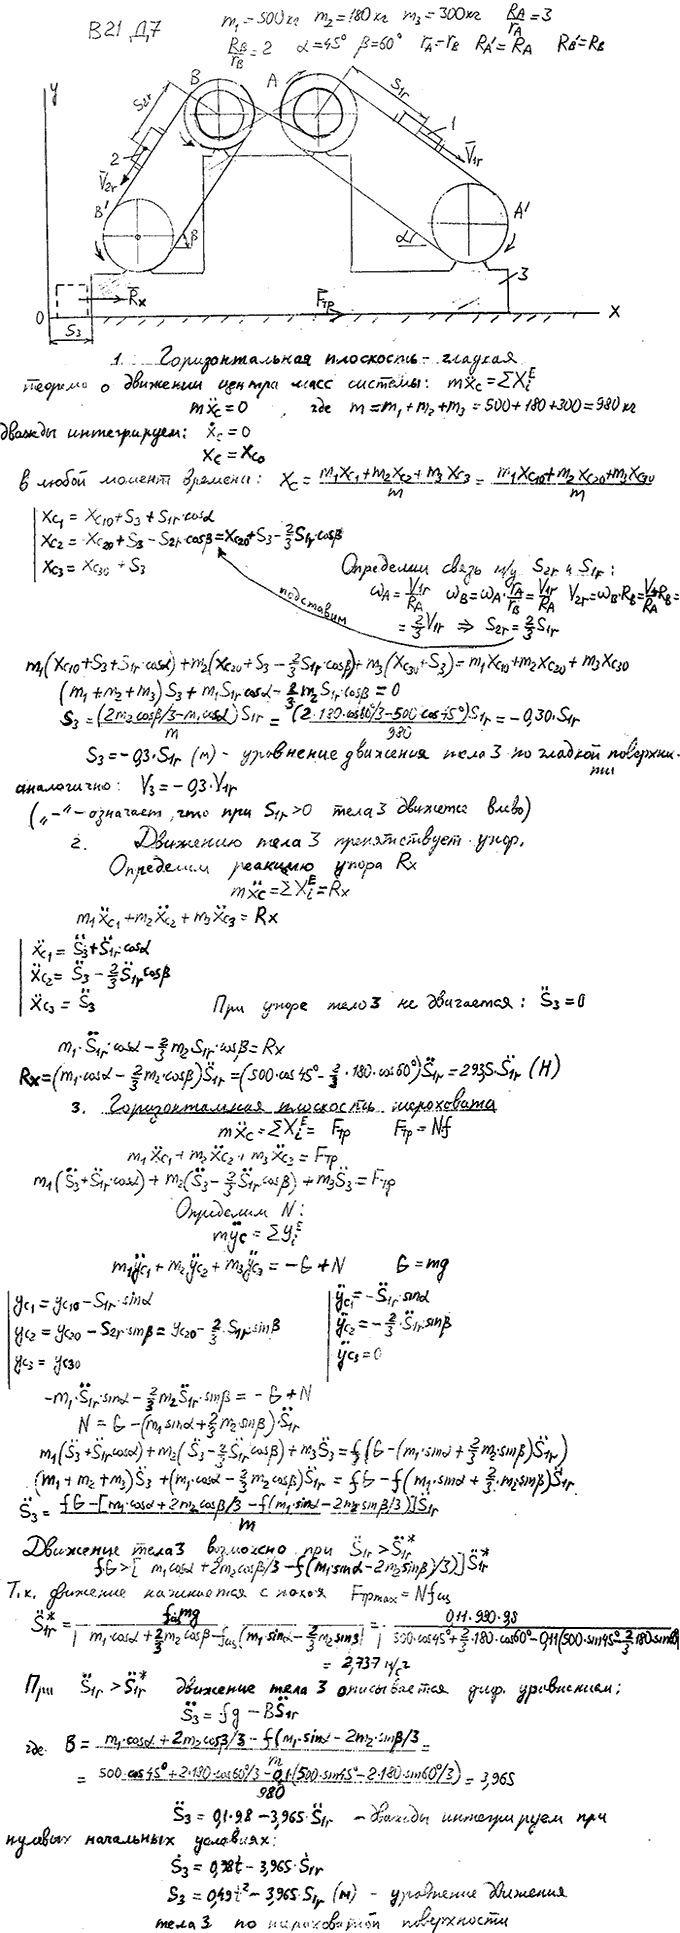 B21 Д7
m₁ = 500кг m₂ = 180кг m₃ = 300кг R_A/r_A = 3
R_B/r_B = 2 α = 45° β = 60° r_A = r_B R_A' = R_A R_B' = R_B
y
B
A
S₁r
S₂r
1
2
V̄₁r
V̄₂r
B'
A'
β
α
3
R̄x
F̄тр
0
S₃
x
1. Горизонтальная плоскость - гладкая
теорема о движении центра масс системы: mẍc = ΣXᵢᴱ
mẍc = 0 , где m = m₁ + m₂ + m₃ = 500 + 180 + 300 = 980 кг
дважды интегрируем: ẋc = 0
xc = xc₀
в любой момент времени: xc = (m₁xc₁ + m₂xc₂ + m₃xc₃)/m = (m₁xc₁₀ + m₂xc₂₀ + m₃xc₃₀)/m
xc₁ = xc₁₀ + S₃ + S₁r cosα
xc₂ = xc₂₀ + S₃ - S₂r cosβ = xc₂₀ + S₃ - 2/3 S₁r cosβ
xc₃ = xc₃₀ + S₃
Определим связь м/у S₂r и S₁r:
ω_A = V₁r/R_A ω_B = ω_A · r_A/r_B = V₁r/R_A V₂r = ω_B · R_B = V₁r/R_A R_B =
= 2/3 V₁r ⇒ S₂r = 2/3 S₁r
подставим
m₁(xc₁₀ + S₃ + S₁r cosα) + m₂(xc₂₀ + S₃ - 2/3 S₁r cosβ) + m₃(xc₃₀ + S₃) = m₁xc₁₀ + m₂xc₂₀ + m₃xc₃₀
(m₁ + m₂ + m₃)S₃ + m₁S₁r cosα - 2/3 m₂S₁r cosβ = 0
S₃ = (2m₂cosβ/3 - m₁cosα)/m S₁r = (2·180·cos60°/3 - 500 cos45°)/980 · S₁r = -0,30·S₁r
S₃ = -0,3·S₁r (м) - уравнение движения тела 3 по гладкой поверхности
аналогично: V₃ = -0,3·V₁r
(„-" - означает, что при S₁r > 0 тела 3 движется влево)
2. Движению тела 3 препятствует упор.
Определим реакцию упора Rx
mẍc = ΣXᵢᴱ = Rx
m₁ẍc₁ + m₂ẍc₂ + m₃ẍc₃ = Rx
ẍc₁ = S̈₃ + S̈₁r cosα
ẍc₂ = S̈₃ - 2/3 S̈₁r cosβ
ẍc₃ = S̈₃
При упоре тело 3 не двигается: S̈₃ = 0
m₁·S̈₁r·cosα - 2/3 m₂S₁r·cosβ = Rx
Rx = (m₁·cosα - 2/3 m₂·cosβ)S̈₁r = (500·cos45° - 2/3·180·cos60°)S̈₁r = 293,5·S̈₁r (Н)
3. Горизонтальная плоскость шероховата
mẍc = ΣXᵢᴱ = Fтр Fтр = Nf
m₁ẍc₁ + m₂ẍc₂ + m₃ẍc₃ = Fтр
m₁(S̈₃ + S̈₁r cosα) + m₂(S̈₃ - 2/3 S̈₁r cosβ) + m₃S̈₃ = Fтр
Определим N:
mÿc = ΣYᵢᴱ
m₁ÿc₁ + m₂ÿc₂ + m₃ÿc₃ = -G + N G = mg
yc₁ = yc₁₀ - S₁r·sinα
yc₂ = yc₂₀ - S₂r sinβ = yc₂₀ - 2/3·S₁r sinβ
yc₃ = yc₃₀
ÿc₁ = -S̈₁r·sinα
ÿc₂ = -2/3·S̈₁r sinβ
ÿc₃ = 0
-m₁·S̈₁r·sinα - 2/3 m₂S̈₁r·sinβ = -G + N
N = G - (m₁sinα + 2/3 m₂sinβ)·S̈₁r
m₁(S̈₃ + S̈₁r cosα) + m₂(S̈₃ - 2/3 S̈₁r cosβ) + m₃S̈₃ = f(G - (m₁·sinα + 2/3 m₂·sinβ)S̈₁r)
(m₁ + m₂ + m₃)S̈₃ + (m₁·cosα - 2/3 m₂cosβ)S̈₁r = fG - f(m₁·sinα + 2/3·m₂sinβ)S̈₁r
S̈₃ = (fG - [m₁·cosα + 2m₂cosβ/3 - f(m₁·sinα - 2m₂sinβ/3)]S̈₁r)/m
Движение тела 3 возможно при S̈₁r > S̈₁r*
f·G > [m₁cosα + 2m₂cosβ/3 - f(m₁sinα - 2m₂sinβ/3)]S̈₁r*
Т.к. движение начинается с покоя Fтрmax = Nfсц
S̈₁r* = fсц mg/|m₁cosα + 2/3 m₂cosβ - fсц(m₁sinα - 2/3 m₂sinβ)| = 0,11·980·9,8/|500·cos45° + 2/3·180·cos60° - 0,11(500·sin45° - 2/3·180·sin60°)|
= 2,737 м/с²
При S̈₁r > S̈₁r* движение тела 3 описывается диф. уравнением:
S̈₃ = fg - BS̈₁r
где B = (m₁·cosα + 2m₂cosβ/3 - f(m₁·sinα - 2m₂·sinβ/3)/m =
= (500·cos45° + 2·180·cos60°/3 - 0,1·(500·sin45° - 2·180·sin60°/3)/980 = 3,965
S̈₃ = 0,1·9,8 - 3,965·S̈₁r - дважды интегрируем при
нулевых начальных условиях:
Ṡ₃ = 0,98t - 3,965·Ṡ₁r
S₃ = 0,49t² - 3,965·S₁r (м) - уравнение движения
тела 3 по шероховатой поверхности